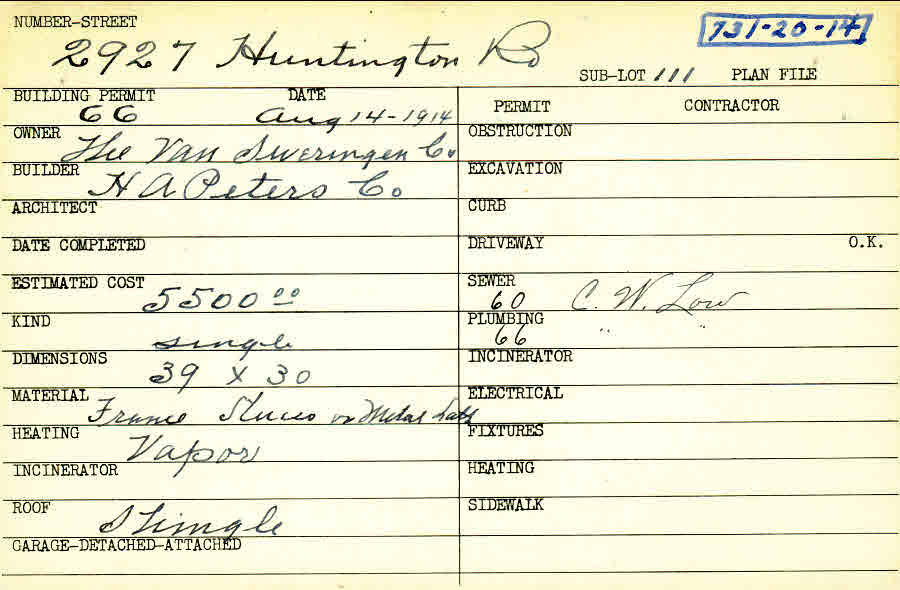 NUMBER-STREET
731-20-14
2927 Huntington Rd
SUB-LOT 111 PLAN FILE
BUILDING PERMIT DATE
66 Aug 14-1914
PERMIT CONTRACTOR
OWNER The Van Sweringen Co
OBSTRUCTION
BUILDER H A Peters Co
EXCAVATION
ARCHITECT
CURB
DATE COMPLETED
DRIVEWAY O.K.
ESTIMATED COST 5500 00
SEWER 60 C. W. Low
KIND single
PLUMBING 66 " "
DIMENSIONS 39 x 30
INCINERATOR
MATERIAL Frame Stucco on Metal Lath
ELECTRICAL
HEATING Vapor
FIXTURES
INCINERATOR
HEATING
ROOF Shingle
SIDEWALK
GARAGE-DETACHED-ATTACHED